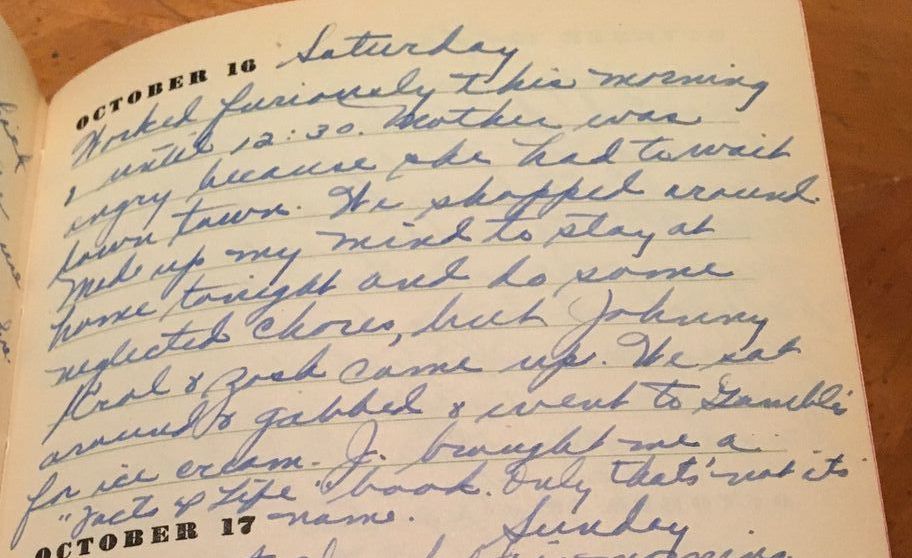 OCTOBER 16 Saturday
Worked furiously this morning
& until 12:30. Mother was
angry because she had to wait
down town. We shopped around.
Made up my mind to stay at
home tonight and do some
neglected chores, but Johnny
Kral & Zosh came up. We sat
around & gabbed & went to Gamble's
for ice cream. J. brought me a
"Facts of Life" book. Only that's not its
name.
OCTOBER 17 Sunday
morning